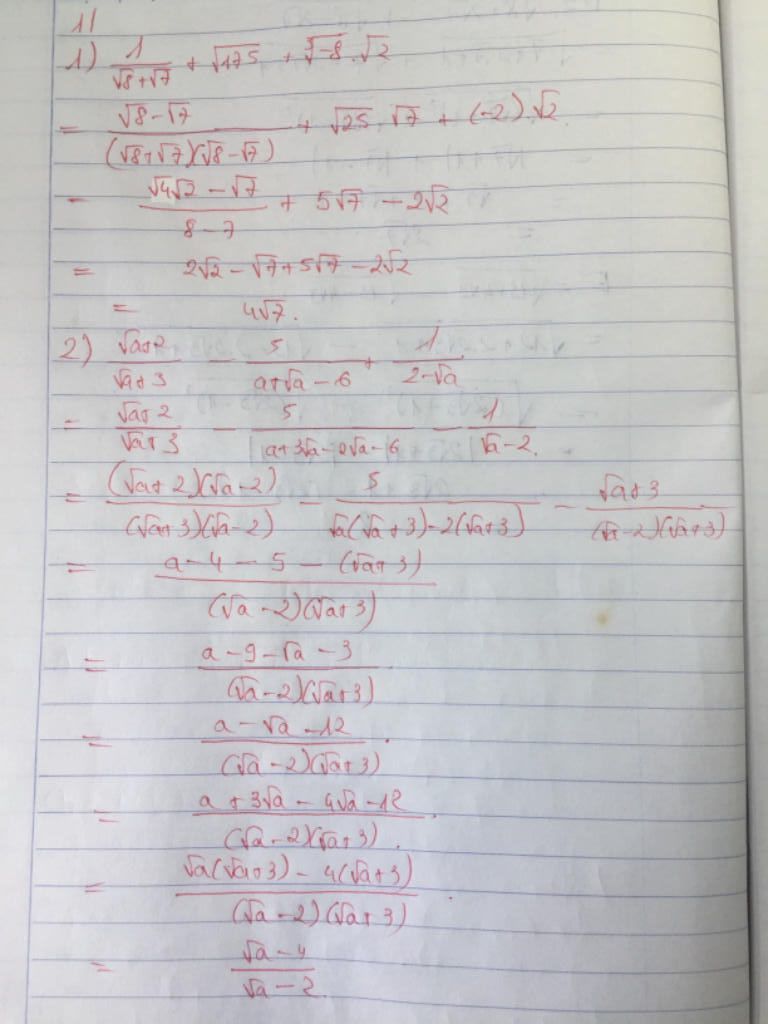 1)
1) 1/(√8+√7) + √175 + ∛-8 . √2
= (√8-√7)/((√8+√7)(√8-√7)) + √25 . √7 + (-2) . √2
= (√4√2 - √7)/(8-7) + 5√7 - 2√2
= 2√2 - √7 + 5√7 - 2√2
= 4√7.
2) (√a+2)/(√a+3) - 5/(a+√a-6) + 1/(2-√a)
= (√a+2)/(√a+3) - 5/(a+3√a-2√a-6) - 1/(√a-2).
= ((√a+2)(√a-2))/((√a+3)(√a-2)) - 5/(√a(√a+3)-2(√a+3)) - (√a+3)/((√a-2)(√a+3))
= (a-4-5-(√a+3))/((√a-2)(√a+3))
= (a-9-√a-3)/((√a-2)(√a+3))
= (a-√a-12)/((√a-2)(√a+3)).
= (a+3√a-4√a-12)/((√a-2)(√a+3)).
= (√a(√a+3)-4(√a+3))/((√a-2)(√a+3)).
= (√a-4)/(√a-2).